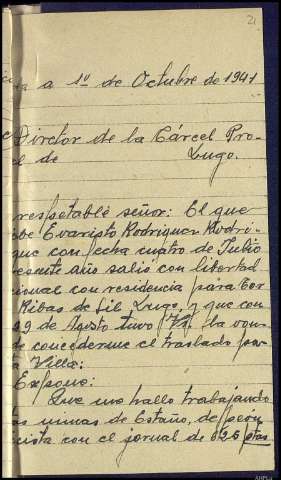 21
a 1º de Octubre de 1941
Director de la Cárcel Pro-
l de Lugo.
respetable señor: El que
be Evaristo Rodriguez Rodri-
que con fecha cuatro de Julio
resente año salio con libertad
cional con residencia para Tor
Ribas de Sil Lugo, y que con
29 de Agosto tuvo Vd. la bon-
de concederme el traslado par
Villa:
Expone:
Que me hallo trabajando
as minas de Estaño, de peón
cista con el jornal de 6'25 ptas
AHPLu